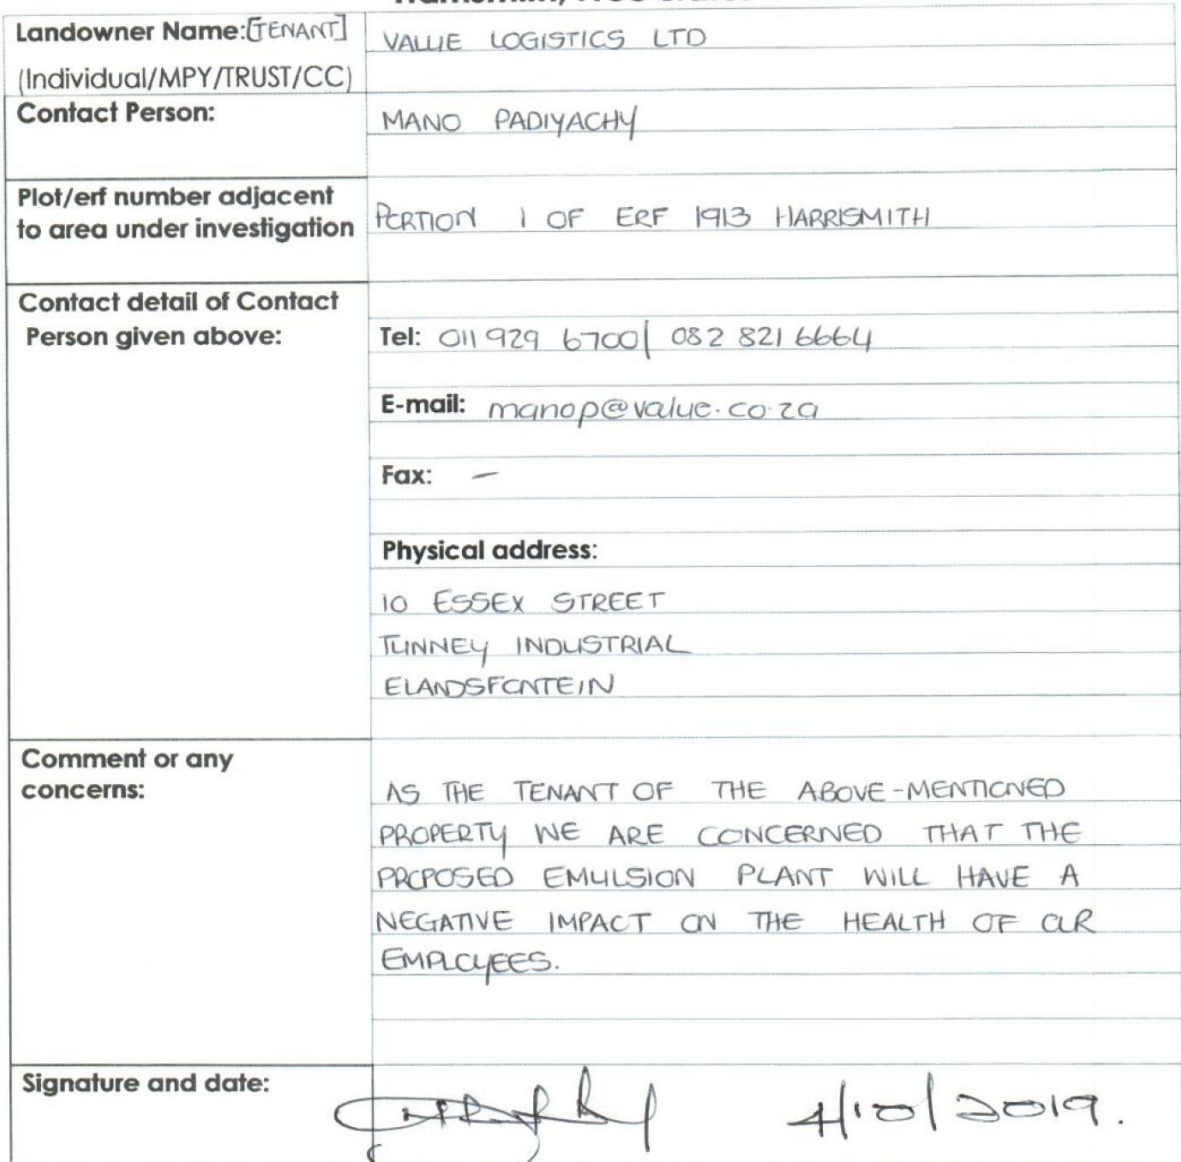 Landowner Name:[TENANT]
(Individual/MPY/TRUST/CC)
VALUE LOGISTICS LTD
Contact Person:
MANO PADIYACHY
Plot/erf number adjacent
to area under investigation
PORTION 1 OF ERF 1913 HARRISMITH
Contact detail of Contact
Person given above:
Tel: 011 929 6700| 082 821 6664
E-mail: manop@value.co.za
Fax: –
Physical address:
10 ESSEX STREET
TUNNEY INDUSTRIAL
ELANDSFONTEIN
Comment or any
concerns:
AS THE TENANT OF THE ABOVE-MENTIONED
PROPERTY WE ARE CONCERNED THAT THE
PROPOSED EMULSION PLANT WILL HAVE A
NEGATIVE IMPACT ON THE HEALTH OF OUR
EMPLOYEES.
Signature and date:
4/10/2019.